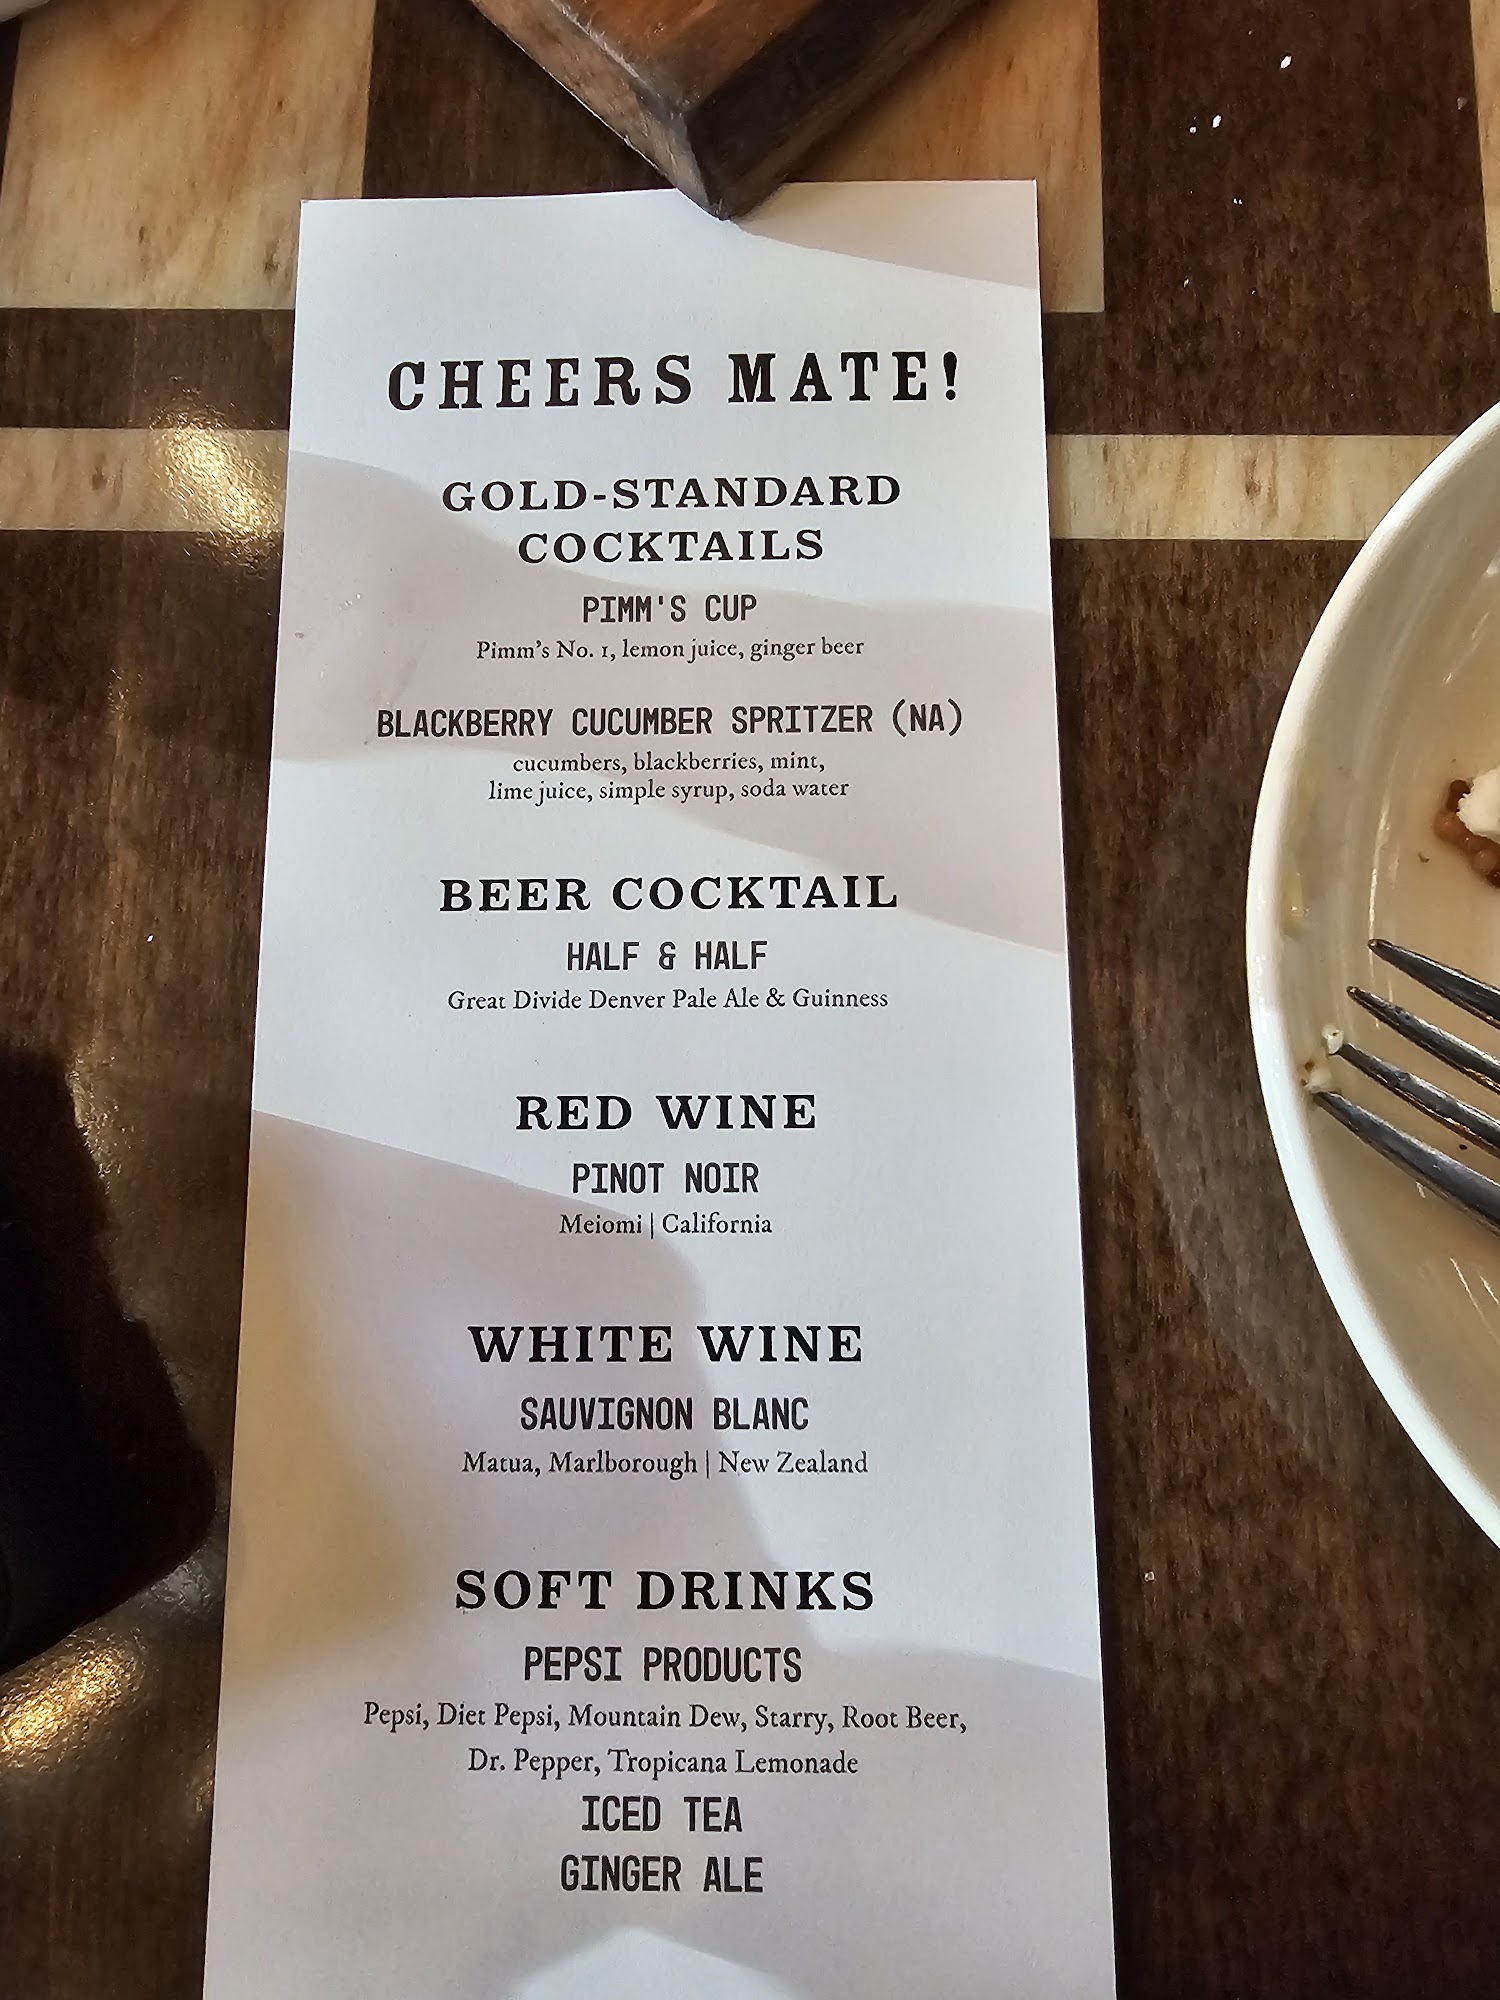 CHEERS MATE!
GOLD-STANDARD
COCKTAILS
PIMM'S CUP
Pimm's No. 1, lemon juice, ginger beer
BLACKBERRY CUCUMBER SPRITZER (NA)
cucumbers, blackberries, mint,
lime juice, simple syrup, soda water
BEER COCKTAIL
HALF & HALF
Great Divide Denver Pale Ale & Guinness
RED WINE
PINOT NOIR
Meiomi | California
WHITE WINE
SAUVIGNON BLANC
Matua, Marlborough | New Zealand
SOFT DRINKS
PEPSI PRODUCTS
Pepsi, Diet Pepsi, Mountain Dew, Starry, Root Beer,
Dr. Pepper, Tropicana Lemonade
ICED TEA
GINGER ALE